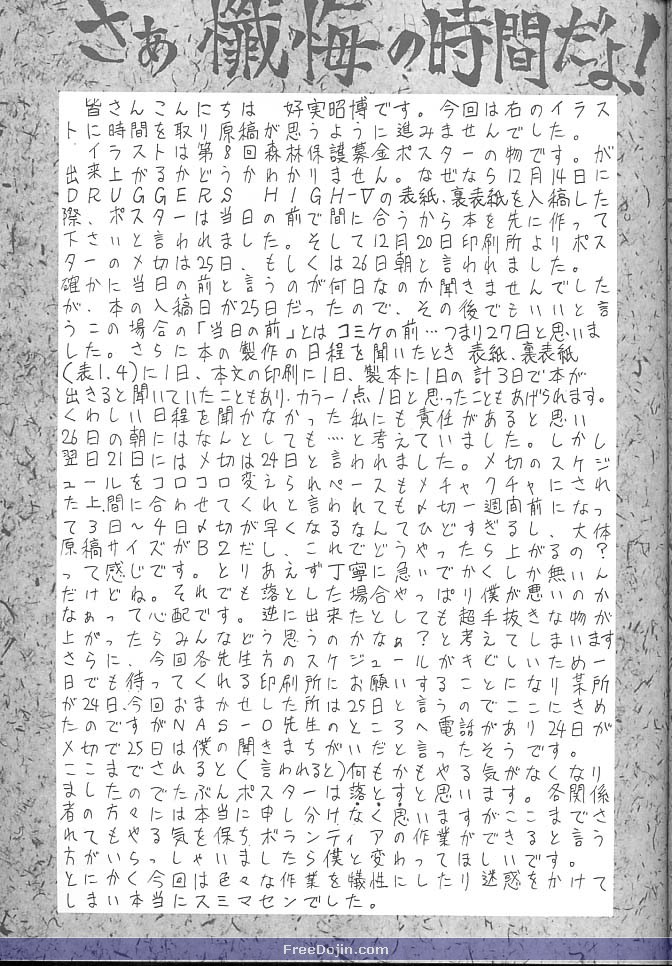 さぁ懺悔の時間だよ!
皆さんこんにちは 好実昭博です。今回は右のイラス
トに時間を取り原稿が思うように進みませんでした。
イラストは第8回森林保護募金ポスターの物です。が
出来上がるかどうかわかりません。なぜなら12月14日に
DRUGGERS HIGH-Vの表紙、裏表紙を入稿した
際、ポスターは当日の前で間に合うから本を先に作って
下さいと言われました。そして12月20日印刷所よりポス
ターの〆切は25日、もしくは26日朝と言われました。
確かに当日の前と言うのが何日なのか聞きませんでした
が、本の入稿日が25日だったので、その後でもいいと言
うこの場合の「当日の前」とはコミケの前…つまり27日と思いま
した。さらに本の製作の日程を聞いたとき 表紙、裏表紙
(表1.4)に1日、本文の印刷に1日、製本に1日の計3日で本が
出きると聞いていたこともあり、カラー1点1日と思ったこともあげられます。
くわしい日程を聞かなかった私にも責任があると思い
26日の朝にはなんとしても…と考えていました。しかし
翌日21日には〆切は24日と言われました。〆切のスケジ
ュールをコロコロ変えられペースもメチャクチャにされ
た上、間に合わせてくれと言われても〆切一週間前になっ
て3日～4日〆切が早くなるなんてひどすぎるし、大体
原稿サイズがB2だし、これでどうやったら上がるの?
って感じです。とりあえず丁寧に急いでかくしか無いん
だけどね。それでも落とした場合やっぱり僕が悪いのか
なぁって心配です。逆に出来たとしても超手抜きな物が
上がったらみんなどう思うのかなぁ?と考えてしまいます
さらに、今回各先生方のスケジュールがキビしいため一
日でも待ってくれる印刷所にお願いすることになり某所
が24日、今回おまかせした所は25日と言うのでここにきめ
たのですがNAS-O先生のところへ電話があり24日が
〆切で25日は僕の聞きまちがいだと言ったそうです。
ここまでされると(言われると)何もかもやる気がなくなり
ましたのでたぶんポスターは落とすと思います。各関係
者の方々には本当に申し分けなく思いますがここまでさ
れてもやる気を保ちボランティアの作業ができると言う
方がいらっしゃいましたら僕と変わってほしいです。
とにかく今回は色々な作業を犠性にしたり迷惑をかけて
しまい本当にスミマセンでした。
FreeDojin.com